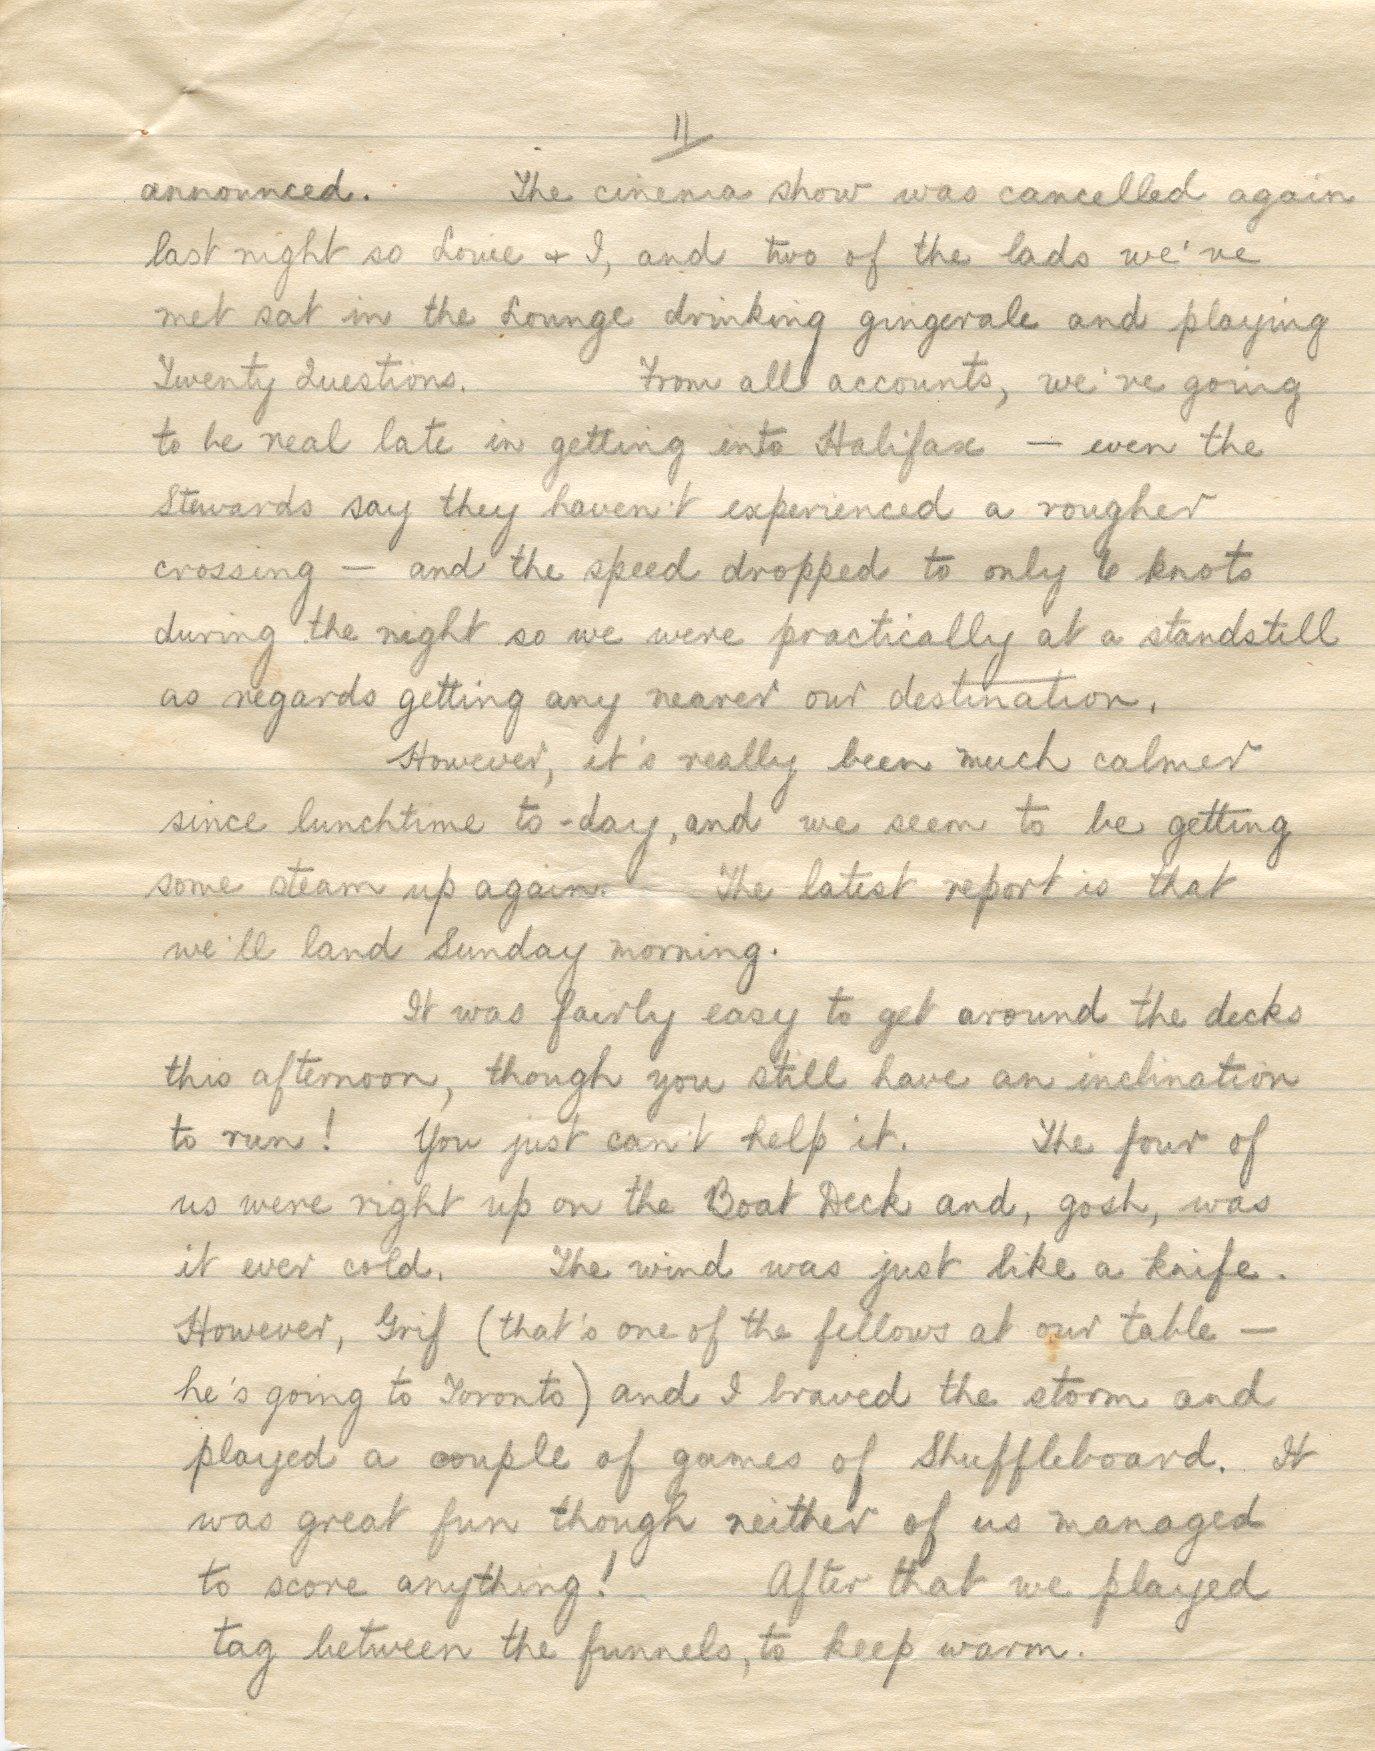 11
announced. The cinema show was cancelled again
last night so Lowie + I, and two of the lads we've
met sat in the Lounge drinking gingerale and playing
Twenty Questions. From all accounts, we're going
to be real late in getting into Halifax — even the
Stewards say they haven't experienced a rougher
crossing — and the speed dropped to only 6 knots
during the night so we were practically at a standstill
as regards getting any nearer our destination.
However, it's really been much calmer
since lunchtime to-day, and we seem to be getting
some steam up again. The latest report is that
we'll land Sunday morning.
It was fairly easy to get around the decks
this afternoon, though you still have an inclination
to run! You just can't help it. The four of
us were right up on the Boat Deck and, gosh, was
it ever cold. The wind was just like a knife.
However, Grif (that's one of the fellows at our table —
he's going to Toronto) and I braved the storm and
played a couple of games of Shuffleboard. It
was great fun though neither of us managed
to score anything! After that we played
tag between the funnels, to keep warm.